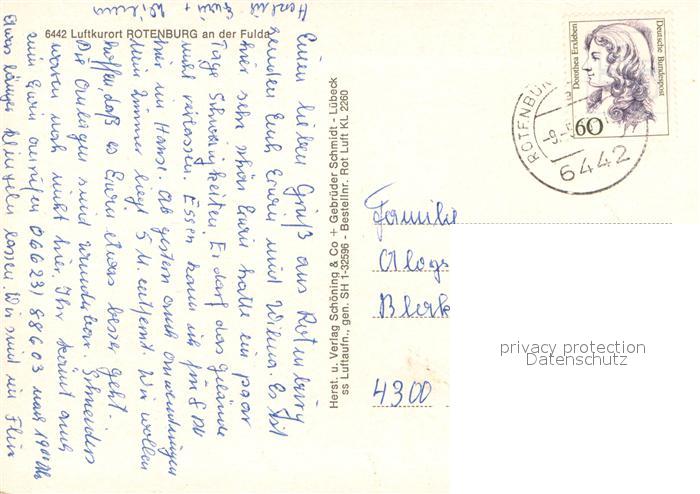 6442 Luftkurort ROTENBURG an der Fulda
Einen lieben Gruß aus Rotenburg
senden Euch Erwin und Wilma. Es ist
hier sehr schön. Erwin hatte ein paar
Tage Schwierigkeiten. Er darf das Gelände
nicht verlassen. Essen kann ich für 8 DM
hier im Haus. Ab gestern auch Anwendungen
Mein Zimmer liegt 5 M. entfernt. Wir wollen
hoffen, daß es Euch etwas besser geht.
Die Anlagen sind wunderbar. Schneiders
waren noch nicht hier. Ihr könnt auch
mal Euern anrufen 06623/88603 nach 19 Uhr
Etwas länger klingeln lassen. Wir sind im
Herzlich
Erwin + Wilma
Herst. u. Verlag Schöning & Co + Gebrüder Schmidt - Lübeck
ss Luftaufn., gen. SH 1-32596 - Bestellnr. Rot Luft KL 2260
Dorothea Erxleben
Deutsche Bundespost
60
ROTENBUR
6442
Familie
Aloys
4300
privacy protection
Datenschutz